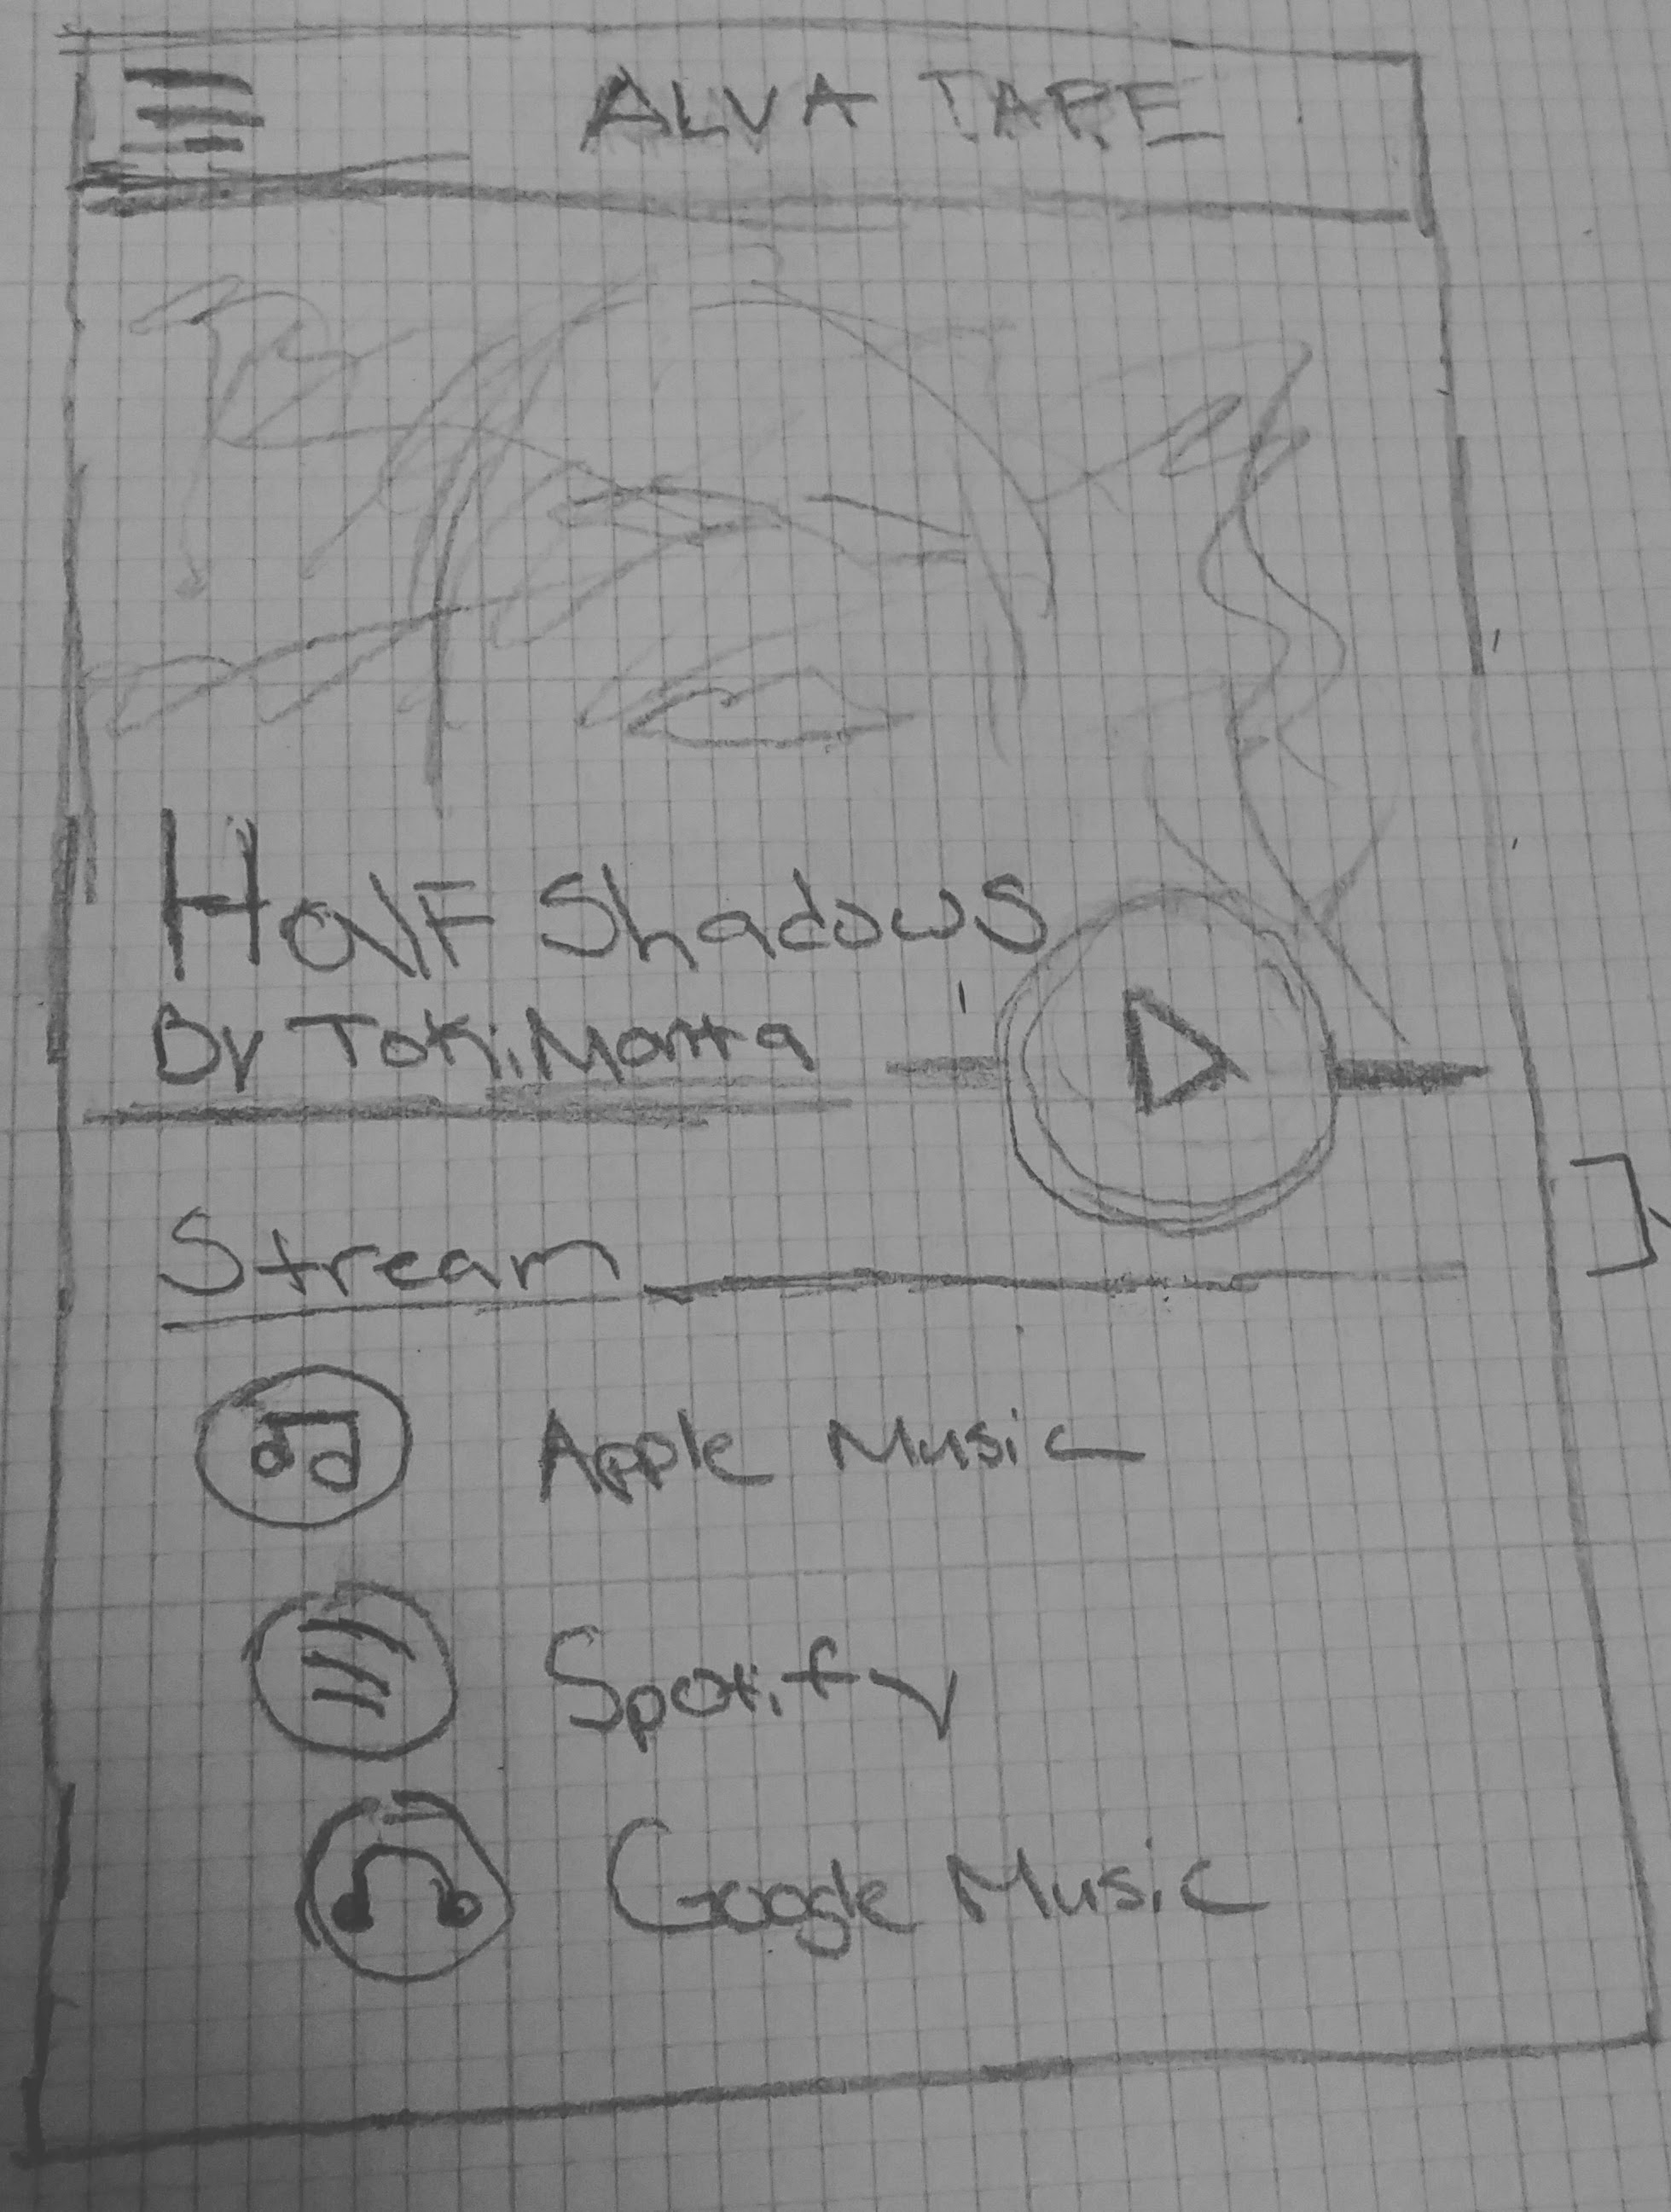 ALVA TAPE
Half Shadows
By TokiMonta
Stream
Apple Music
Spotify
Google Music